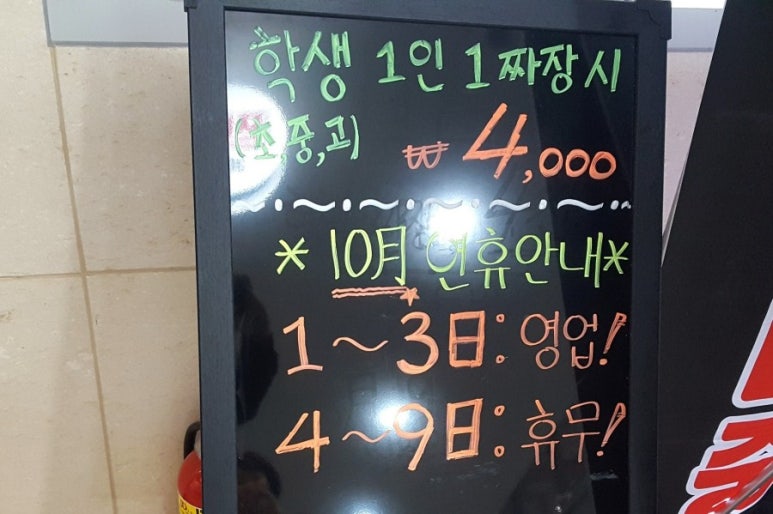 학생 1인 1짜장시
(초,중,고) ₩4,000
*10月 연휴안내*
1~3日: 영업!
4~9日: 휴무!